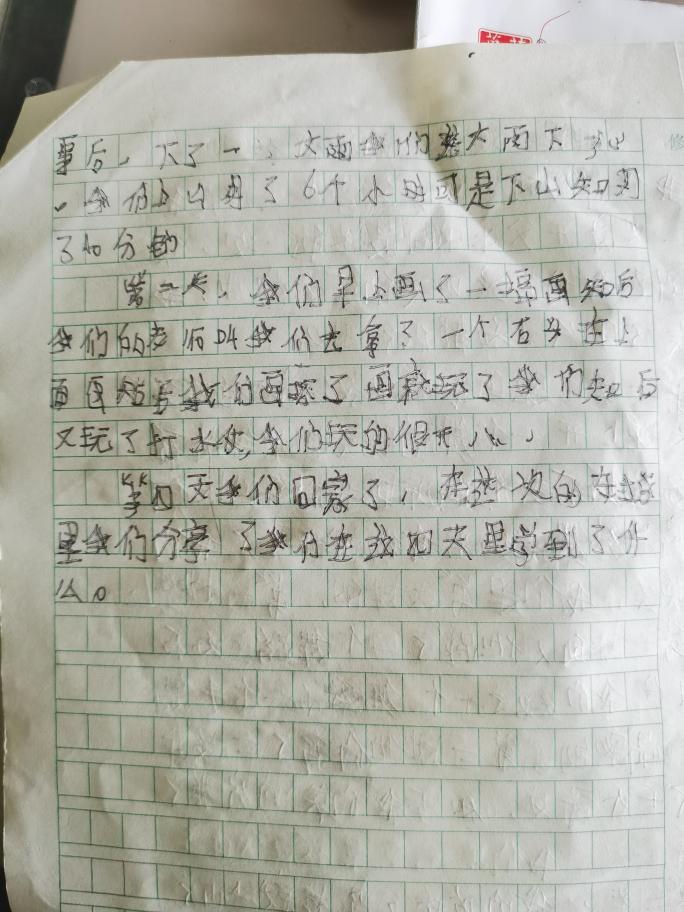 事后,下了一,大雨我们趁大雨下山
,我们上山用了6个小时可是下山只用
了40分的
第三天,我们早上画了一幅画知后
我们的老师叫我们去拿了一个石头在上
面画知后我们画完了画就玩了我们知后
又玩了打水仗,我们玩的很开心,
第四天我们回家了,在这次的在
里我们分享了我们在这四天里学到了什
么。